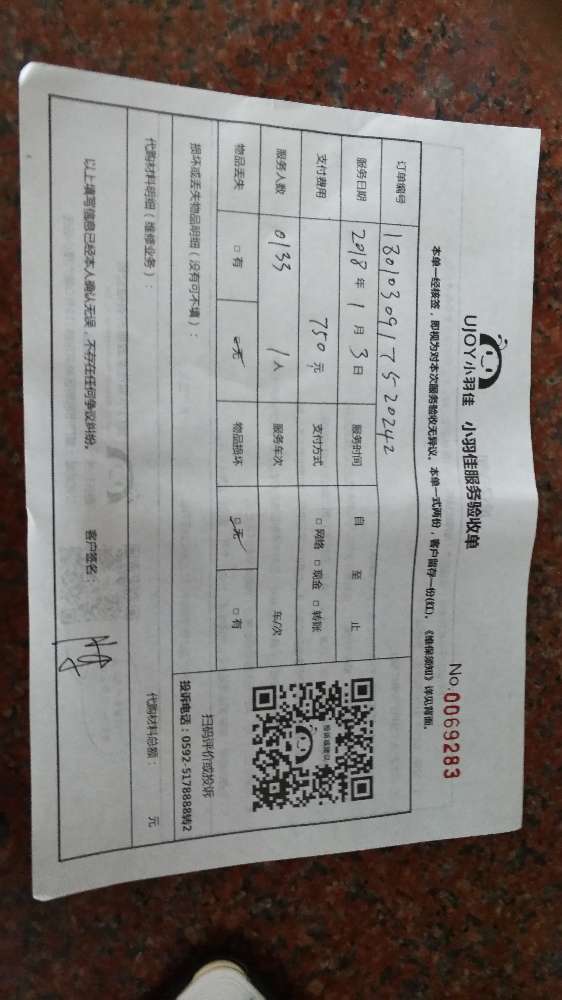 UJOY小羽佳 小羽佳服务验收单
No.0069283
本单一经核签，即视为对本次服务验收无异议。本单一式两份，客户留存一份(红)。《维保须知》详见背面。
订单编号 1801030917520242
服务日期 2018年1月3日 服务时间 自 至 止
支付费用 750元 支付方式 □网络 □现金 □转账
服务人数 0133 1人 服务车次 车/次
物品丢失 □有 □无 物品损坏 □无 □有
损坏或丢失物品明细（没有可不填）：
投诉或建议
扫码评价或投诉
投诉电话：0592-5178888转2
代购材料明细（维修业务）： 代购材料总额： 元
以上填写信息已经本人确认无误，不存在任何争议纠纷。 客户签名：